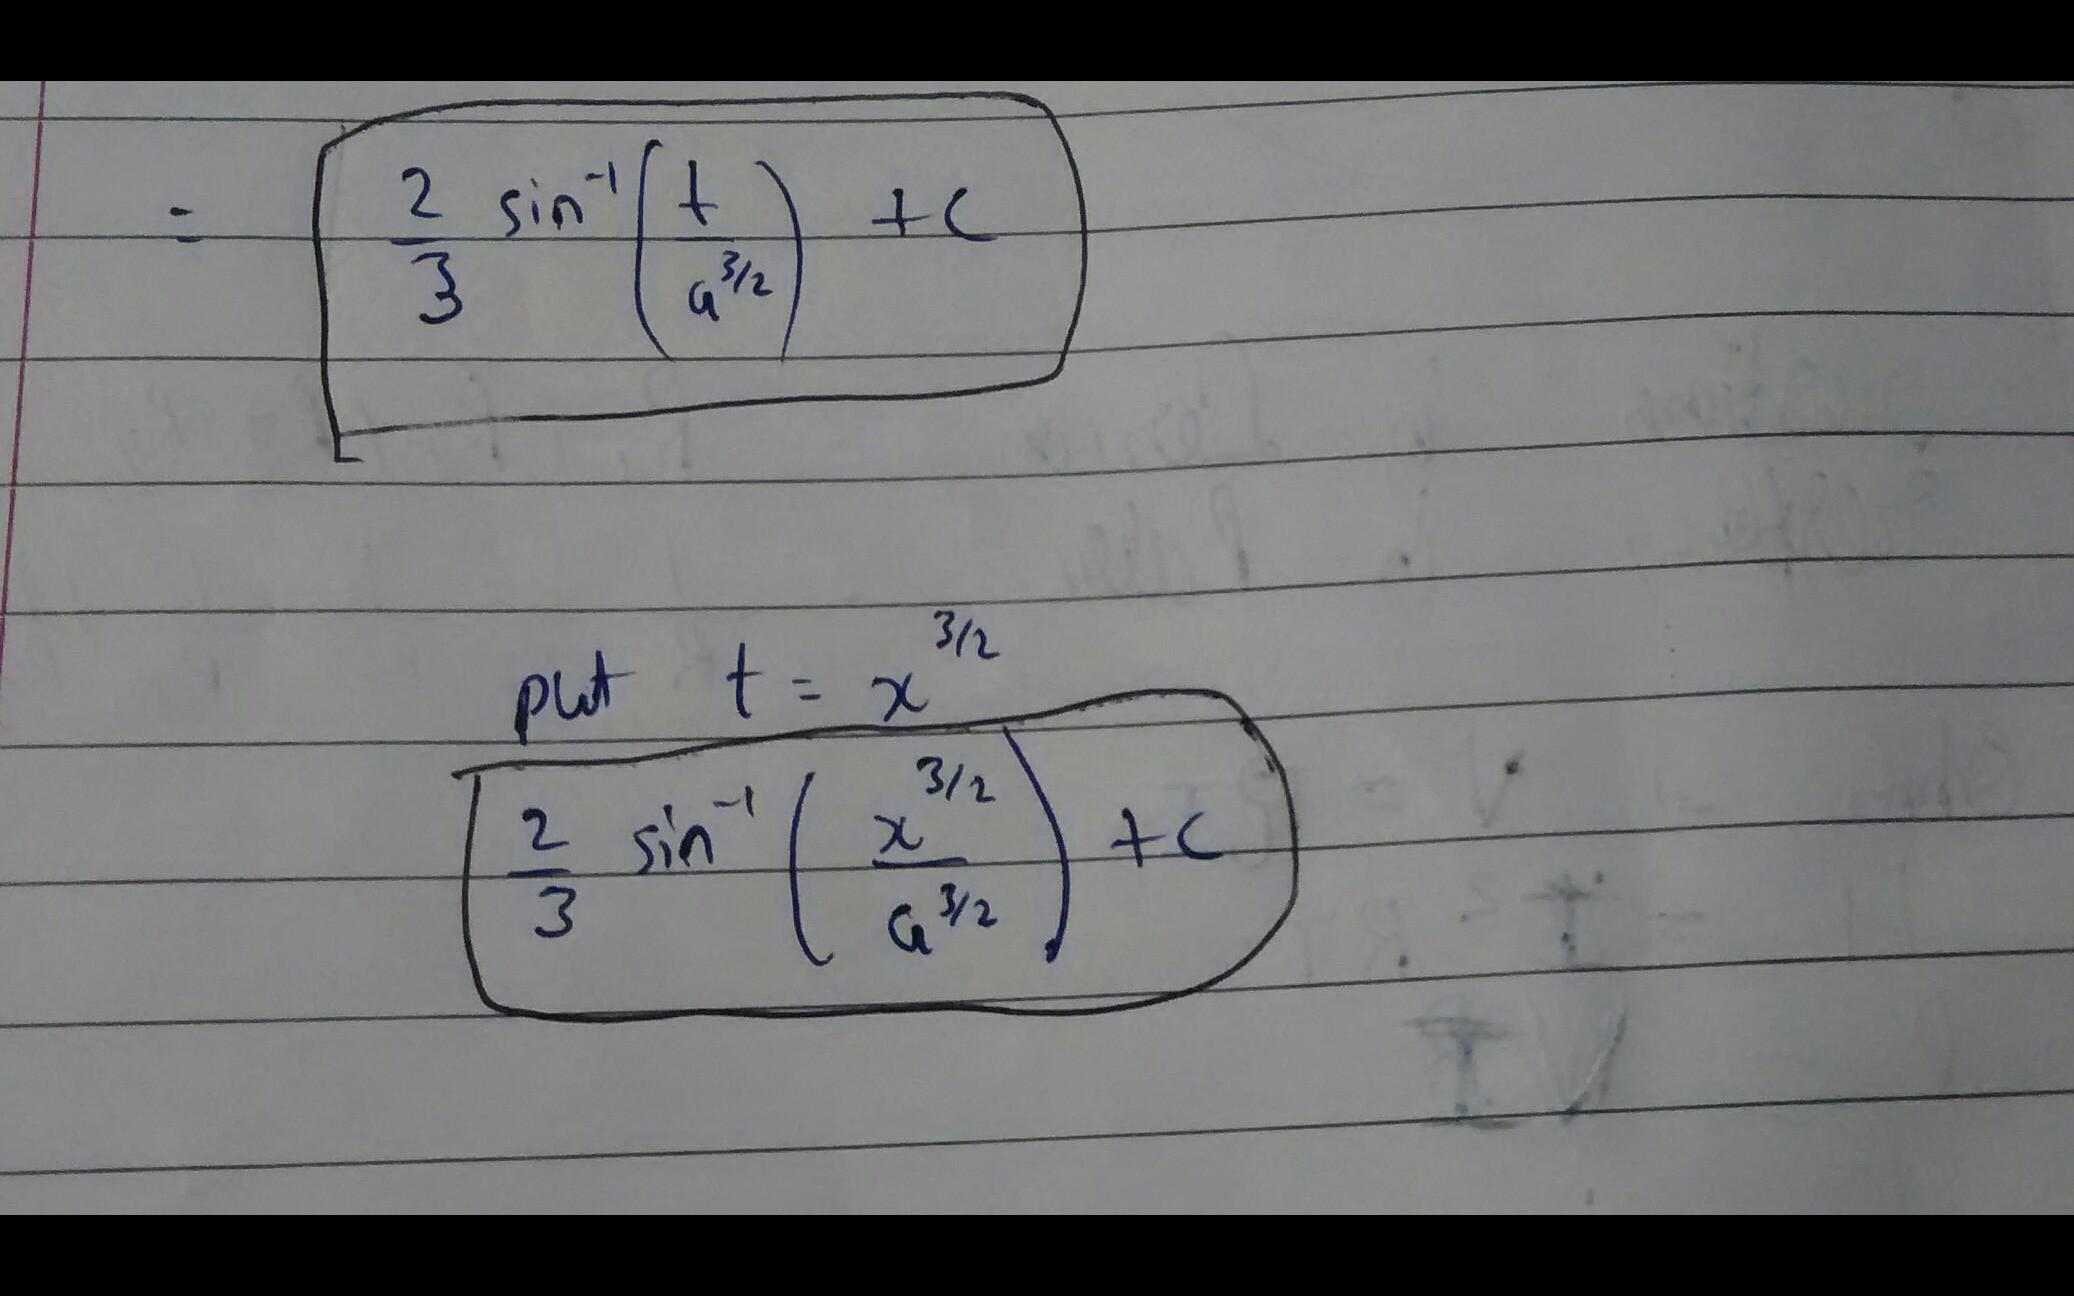 = 2/3 sin⁻¹ (t/a^3/2) + C
put t = x^3/2
2/3 sin⁻¹ (x^3/2 / a^3/2) + C